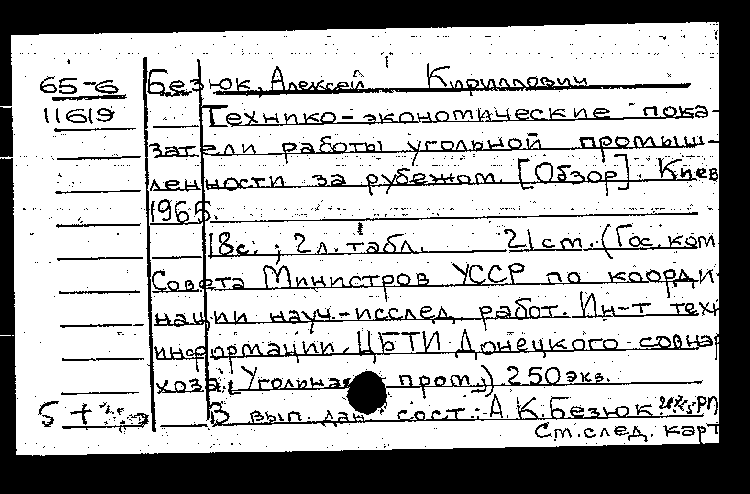 65-6 Безюк, Алексей Кириллович
11619 Технико-экономические пока-
затели работы угольной промыш-
ленности за рубежом. [Обзор]. Киев
1965.
18с.; 2л. табл. 21 см. (Гос. ком
Совета Министров УССР по коорди
нации науч-исслед. работ. Ин-т техн
информации. ЦБТИ Донецкого совнар
хоза. Угольная пром.) 250экз.
5+ В вып. дан. сост.: А.К.Безюк
См.след. карт